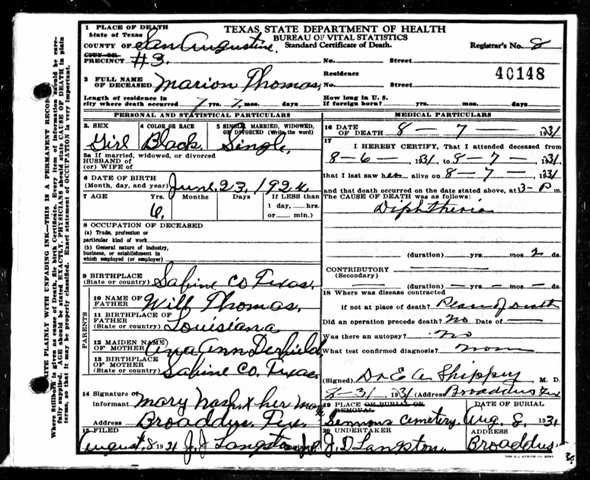 TEXAS STATE DEPARTMENT OF HEALTH
BUREAU OF VITAL STATISTICS
Standard Certificate of Death.
1 PLACE OF DEATH
State of Texas
COUNTY OF San Augustine
Registrar's No. 8
PRECINCT #3. No. Street
2 FULL NAME OF DECEASED Marion Thomas,
Residence No. Street
40148
Length of residence in city where death occurred 7 yrs. 2 mos. days
How long in U. S. if foreign born? yrs. mos. days
PERSONAL AND STATISTICAL PARTICULARS
3. SEX Girl
4 COLOR OR RACE Black
5 SINGLE, MARRIED, WIDOWED, OR DIVORCED (Write the word) Single,
5a If married, widowed, or divorced
HUSBAND OF
(or) WIFE OF
6 DATE OF BIRTH (Month, day, and year) June 23, 1924
7 AGE Years Months Days If LESS than
6, 1 day,.....hrs.
or.......min.)
8 OCCUPATION OF DECEASED
(a) Trade, profession or particular kind of work
(b) General nature of industry, business, or establishment in which employed (or employer)
9 BIRTHPLACE (State or country) Sabine Co Texas,
PARENTS
10 NAME OF FATHER Will Thomas,
11 BIRTHPLACE OF FATHER (State or country) Louisiana
12 MAIDEN NAME OF MOTHER Ann
13 BIRTHPLACE OF MOTHER (State or country) Sabine Co, Texas
14 Signature of Informant Mary Nash x her mark
Address Broaddus Tex
15 FILED August 8 1931 J. J. Langston
MEDICAL PARTICULARS
16 DATE OF DEATH 8 - 7 - 1931
17 I HEREBY CERTIFY, That I attended deceased from
8-6- 1931 to 8-7- 1931
that I last saw her alive on 8-7- 1931
and that death occurred on the date stated above, at 3-P m.
The CAUSE OF DEATH was as follows:
Diphtheria
(duration) yrs. mos. 2 ds.
CONTRIBUTORY
(Secondary)
(duration) yrs. mos. ds.
18 Where was disease contracted
if not at place of death? Place of death
Did an operation precede death? No Date of
Was there an autopsy? No
What test confirmed diagnosis?
(Signed) Dr E A Shippy M. D.
1931 (Address) Broaddus Tex
19 PLACE OR BURIAL OR REMOVAL Cemetery
DATE OF BURIAL Aug, 8, 1931
20 UNDERTAKER J. D. Langston
ADDRESS Broaddus